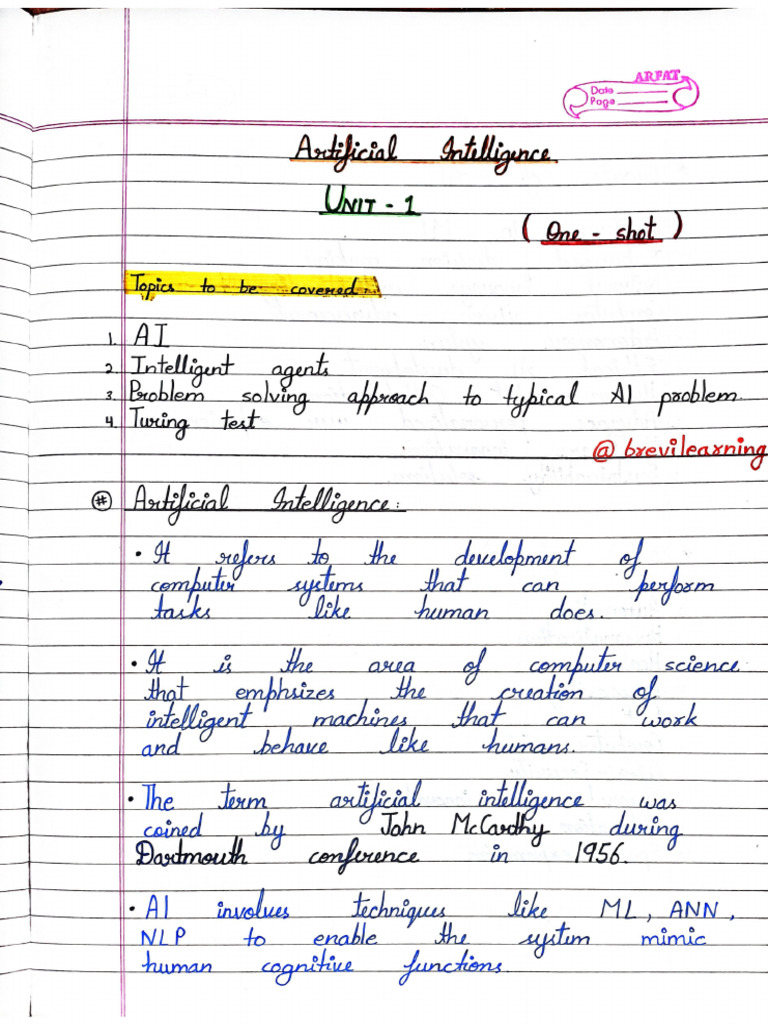 ARFAT
Date
Page
Artificial Intelligence
UNIT - 1
( One - shot )
Topics to be covered.
1. AI
2. Intelligent agents
3. Problem solving approach to typical AI problem.
4. Turing test
@ brevilearning
# Artificial Intelligence:
• It refers to the development of
computer systems that can perform
tasks like human does.
• It is the area of computer science
that emphsizes the creation of
intelligent machines that can work
and behave like humans.
• The term artificial intelligence was
coined by John McCardhy during
Dartmouth conference in 1956.
• AI involves techniques like ML, ANN,
NLP to enable the system mimic
human cognitive functions.